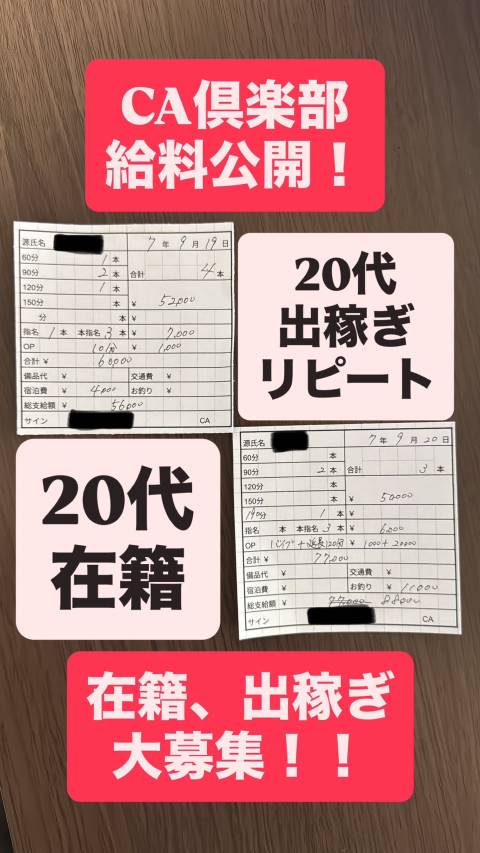 CA倶楽部
給料公開！
源氏名 7年 9月 19日
60分 1本
90分 2本 合計 4本
120分 1本
150分 本 ¥ 52,000
分 本 ¥
指名 1本 本指名 3本 ¥ 7,000
OP 10分 ¥ 1,000
合計 ¥ 60,000
備品代 ¥ 交通費 ¥
宿泊費 ¥ 4,000 お釣り ¥
総支給額 ¥ 56,000
サイン CA
20代
出稼ぎ
リピート
20代
在籍
源氏名 7年 9月 20日
60分 本
90分 2本 合計 3本
120分 本
150分 本 ¥ 50,000
190分 1本 ¥
指名 本 本指名 3本 ¥ 6,000
OP バイブ+延長120分 ¥ 1000+20000
合計 ¥ 77,000
備品代 ¥ 交通費 ¥
宿泊費 ¥ お釣り ¥ 11000
総支給額 ¥ 77,000 88000
サイン CA
在籍、出稼ぎ
大募集！！